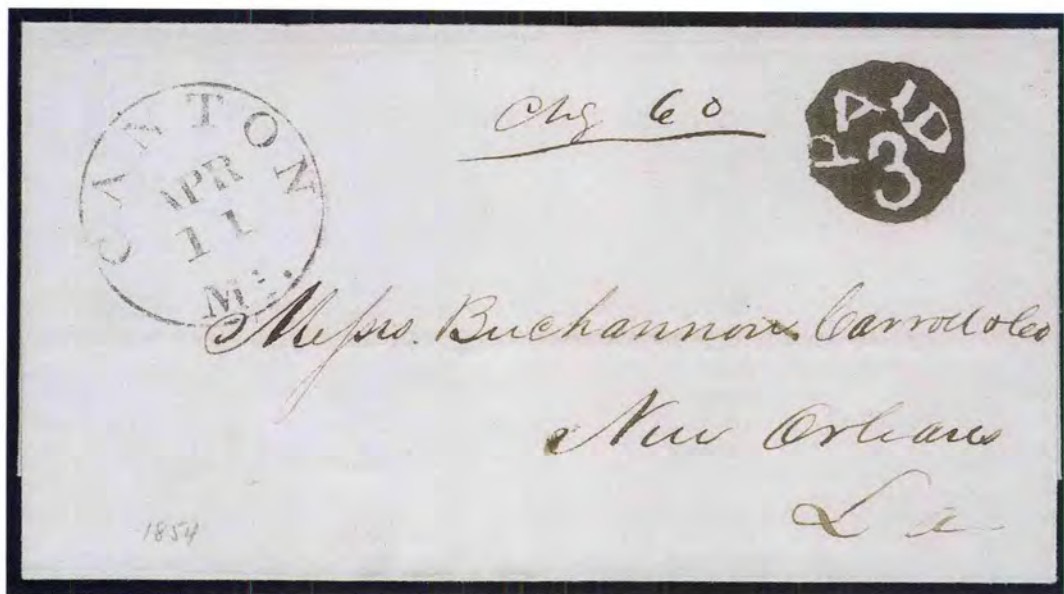 CANTON
APR
11
Mi.
Chg 60
PAID
3
Messrs. Buchannon Carroll & Co
New Orleans
La
1854